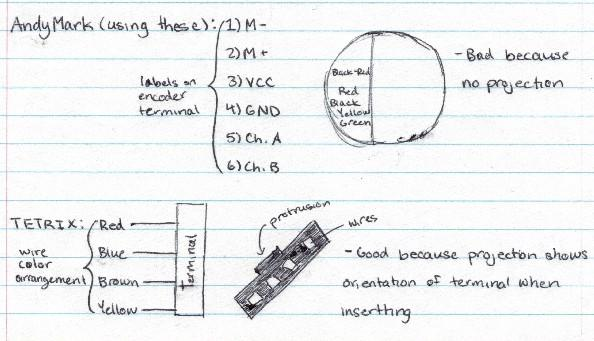 AndyMark (using these):
1) M-
2) M+
3) VCC
4) GND
5) Ch. A
6) Ch. B
labels on
encoder
terminal
Black-Red
Red
Black
Yellow
Green
-Bad because
no projection
TETRIX:
wire
color
arrangement
Red
Blue
Brown
Yellow
terminal
protrusion
wires
-Good because projection shows
orientation of terminal when
inserthng